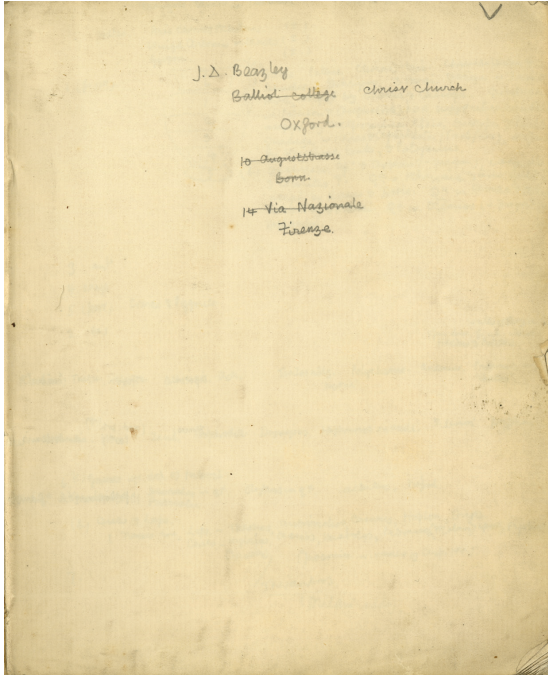 J. D. Beazley
Balliol College Christ Church
Oxford.
10 Auguststrasse
Bonn
14 Via Nazionale
Firenze.